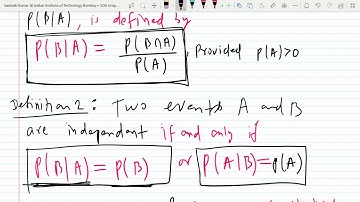 Santosh Kumar @ Indian Institute of Technology Bombay - SOA Grap...
P(B|A), is defined by
P(B|A) = P(B∩A) / P(A), Provided P(A)>0
Definition 2: Two events A and B
are independent if and only if
P(B|A) = P(B) or P(A|B)=P(A)